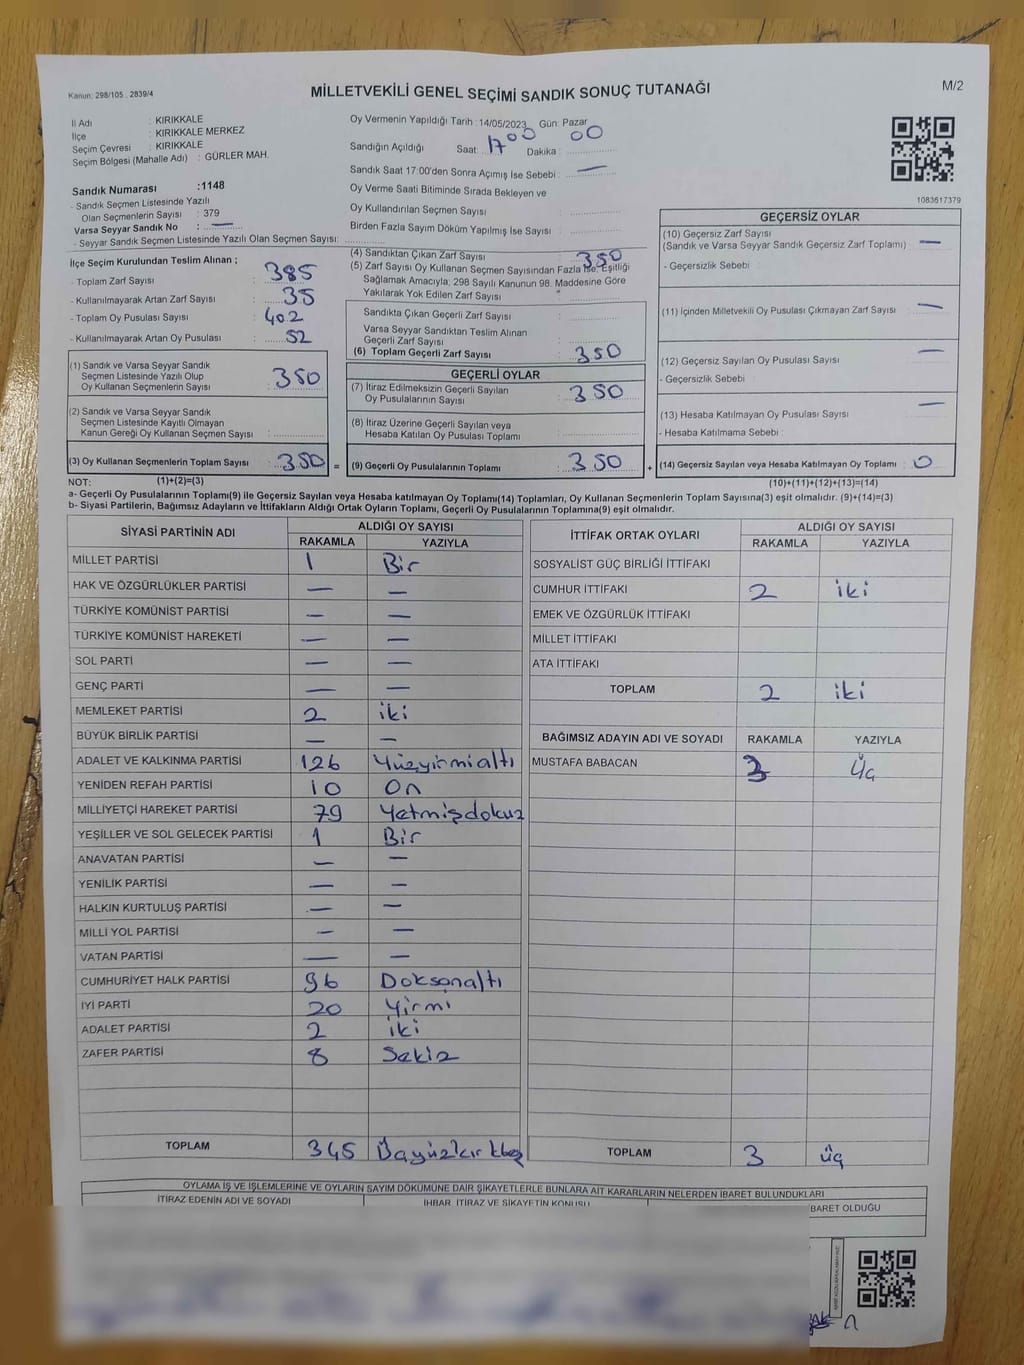 Kanun: 298/105 , 2839/4
MİLLETVEKİLİ GENEL SEÇİMİ SANDIK SONUÇ TUTANAĞI
M/2
İl Adı : KIRIKKALE
İlçe : KIRIKKALE MERKEZ
Seçim Çevresi : KIRIKKALE
Seçim Bölgesi (Mahalle Adı) : GÜRLER MAH.
Oy Vermenin Yapıldığı Tarih :14/05/2023 Gün: Pazar
Sandığın Açıldığı Saat: 17 00 Dakika : 00
Sandık Saat 17:00'den Sonra Açımış İse Sebebi : —
Oy Verme Saati Bitiminde Sırada Bekleyen ve
Oy Kullandırılan Seçmen Sayısı :
Birden Fazla Sayım Döküm Yapılmış İse Sayısı :
Sandık Numarası :1148
- Sandık Seçmen Listesinde Yazılı
Olan Seçmenlerin Sayısı : 379
Varsa Seyyar Sandık No : —
- Seyyar Sandık Seçmen Listesinde Yazılı Olan Seçmen Sayısı:
1083617379
İlçe Seçim Kurulundan Teslim Alınan ;
- Toplam Zarf Sayısı : 385
- Kullanılmayarak Artan Zarf Sayısı : 35
- Toplam Oy Pusulası Sayısı : 402
- Kullanılmayarak Artan Oy Pusulası : 52
(1) Sandık ve Varsa Seyyar Sandık
Seçmen Listesinde Yazılı Olup
Oy Kullanan Seçmenlerin Sayısı : 350
(2) Sandık ve Varsa Seyyar Sandık
Seçmen Listesinde Kayıtlı Olmayan
Kanun Gereği Oy Kullanan Seçmen Sayısı :
(3) Oy Kullanan Seçmenlerin Toplam Sayısı : 350 =
(1)+(2)=(3)
(4) Sandıktan Çıkan Zarf Sayısı : 350
(5) Zarf Sayısı Oy Kullanan Seçmen Sayısından Fazla İse, Eşitliği
Sağlamak Amacıyla; 298 Sayılı Kanunun 98. Maddesine Göre
Yakılarak Yok Edilen Zarf Sayısı
Sandıkta Çıkan Geçerli Zarf Sayısı :
Varsa Seyyar Sandıktan Teslim Alınan
Geçerli Zarf Sayısı :
(6) Toplam Geçerli Zarf Sayısı : 350
GEÇERLİ OYLAR
(7) İtiraz Edilmeksizin Geçerli Sayılan
Oy Pusulalarının Sayısı : 350
(8) İtiraz Üzerine Geçerli Sayılan veya
Hesaba Katılan Oy Pusulası Toplamı :
(9) Geçerli Oy Pusulalarının Toplamı : 350 +
GEÇERSİZ OYLAR
(10) Geçersiz Zarf Sayısı
(Sandık ve Varsa Seyyar Sandık Geçersiz Zarf Toplamı) : —
- Geçersizlik Sebebi :
(11) İçinden Milletvekili Oy Pusulası Çıkmayan Zarf Sayısı : —
(12) Geçersiz Sayılan Oy Pusulası Sayısı : —
- Geçersizlik Sebebi :
(13) Hesaba Katılmayan Oy Pusulası Sayısı : —
- Hesaba Katılmama Sebebi :
(14) Geçersiz Sayılan veya Hesaba Katılmayan Oy Toplamı : 0
(10)+(11)+(12)+(13)=(14)
NOT:
a- Geçerli Oy Pusulalarının Toplamı(9) ile Geçersiz Sayılan veya Hesaba katılmayan Oy Toplamı(14) Toplamları, Oy Kullanan Seçmenlerin Toplam Sayısına(3) eşit olmalıdır. (9)+(14)=(3)
b- Siyasi Partilerin, Bağımsız Adayların ve İttifakların Aldığı Ortak Oyların Toplamı, Geçerli Oy Pusulalarının Toplamına(9) eşit olmalıdır.
SİYASİ PARTİNİN ADI ALDIĞI OY SAYISI
RAKAMLA YAZIYLA
MİLLET PARTİSİ 1 Bir
HAK VE ÖZGÜRLÜKLER PARTİSİ — —
TÜRKİYE KOMÜNİST PARTİSİ — —
TÜRKİYE KOMÜNİST HAREKETİ — —
SOL PARTİ — —
GENÇ PARTİ — —
MEMLEKET PARTİSİ 2 iki
BÜYÜK BİRLİK PARTİSİ — —
ADALET VE KALKINMA PARTİSİ 126 Yüzyirmialtı
YENİDEN REFAH PARTİSİ 10 On
MİLLİYETÇİ HAREKET PARTİSİ 79 Yetmişdokuz
YEŞİLLER VE SOL GELECEK PARTİSİ 1 Bir
ANAVATAN PARTİSİ — —
YENİLİK PARTİSİ — —
HALKIN KURTULUŞ PARTİSİ — —
MİLLİ YOL PARTİSİ — —
VATAN PARTİSİ — —
CUMHURİYET HALK PARTİSİ 96 Doksanaltı
İYİ PARTİ 20 Yirmi
ADALET PARTİSİ 2 iki
ZAFER PARTİSİ 8 Sekiz
TOPLAM 345 Üçyüzkırkbeş
İTTİFAK ORTAK OYLARI ALDIĞI OY SAYISI
RAKAMLA YAZIYLA
SOSYALİST GÜÇ BİRLİĞİ İTTİFAKI
CUMHUR İTTİFAKI 2 iki
EMEK VE ÖZGÜRLÜK İTTİFAKI
MİLLET İTTİFAKI
ATA İTTİFAKI
TOPLAM 2 iki
BAĞIMSIZ ADAYIN ADI VE SOYADI RAKAMLA YAZIYLA
MUSTAFA BABACAN 3 Üç
TOPLAM 3 üç
OYLAMA İŞ VE İŞLEMLERİNE VE OYLARIN SAYIM DÖKÜMÜNE DAİR ŞİKAYETLERLE BUNLARA AİT KARARLARIN NELERDEN İBARET BULUNDUKLARI
İTİRAZ EDENİN ADI VE SOYADI İHBAR, İTİRAZ VE ŞİKAYETİN KONUSU BARET OLDUĞU